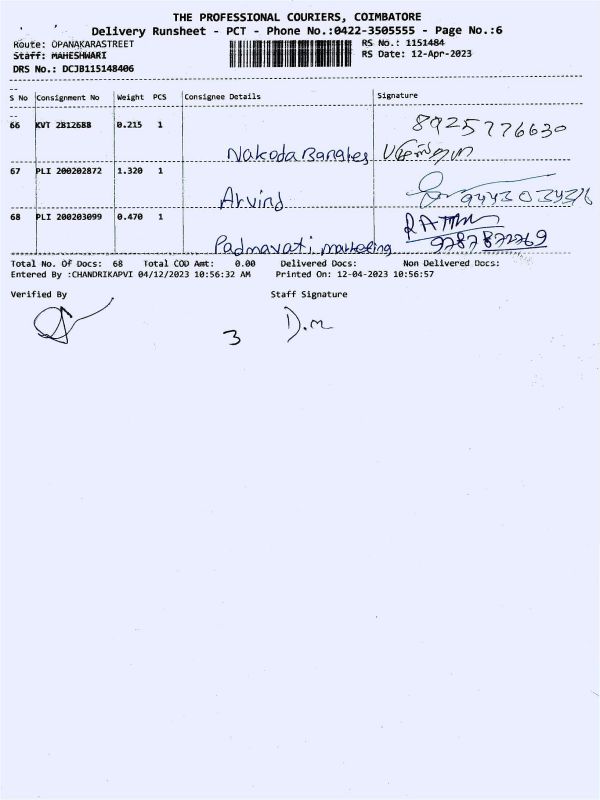 THE PROFESSIONAL COURIERS, COIMBATORE
Delivery Runsheet - PCT - Phone No.:0422-3505555 - Page No.:6
Route: OPANAKARASTREET
RS No.: 1151484
Staff: MAHESHWARI
RS Date: 12-Apr-2023
DRS No.: DCJB115148406
S No Consignment No Weight PCS Consignee Details Signature
66 KVT 2812688 0.215 1
8925776630
Nakoda Bangles
67 PLI 200202872 1.320 1
Arvind
68 PLI 200203099 0.470 1
Padmavati marketing
Total No. Of Docs: 68 Total COD Amt: 0.00 Delivered Docs: Non Delivered Docs:
Entered By :CHANDRIKAPVI 04/12/2023 10:56:32 AM Printed On: 12-04-2023 10:56:57
Verified By Staff Signature
D.m
3